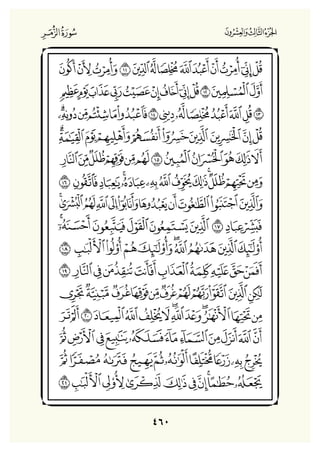 الجُزْءُ الثَّالِثُ وَالعِشْرُونَ
سُورَةُ الزُّمَرِ
قُلْ إِنِّىٓ أُمِرْتُ أَنْ أَعْبُدَ ٱللَّهَ مُخْلِصًا لَّهُ ٱلدِّينَ ١١ وَأُمِرْتُ لِأَنْ أَكُونَ
أَوَّلَ ٱلْمُسْلِمِينَ ١٢ قُلْ إِنِّىٓ أَخَافُ إِنْ عَصَيْتُ رَبِّى عَذَابَ يَوْمٍ عَظِيمٍ
١٣ قُلِ ٱللَّهَ أَعْبُدُ مُخْلِصًا لَّهُۥ دِينِى ١٤ فَٱعْبُدُوا۟ مَا شِئْتُم مِّن دُونِهِۦۗ
قُلْ إِنَّ ٱلْخَٰسِرِينَ ٱلَّذِينَ خَسِرُوٓا۟ أَنفُسَهُمْ وَأَهْلِيهِمْ يَوْمَ ٱلْقِيَٰمَةِۗ
أَلَا ذَٰلِكَ هُوَ ٱلْخُسْرَانُ ٱلْمُبِينُ ١٥ لَهُم مِّن فَوْقِهِمْ ظُلَلٌ مِّنَ ٱلنَّارِ
وَمِن تَحْتِهِمْ ظُلَلٌۚ ذَٰلِكَ يُخَوِّفُ ٱللَّهُ بِهِۦ عِبَادَهُۥۚ يَٰعِبَادِ فَٱتَّقُونِ ١٦
وَٱلَّذِينَ ٱجْتَنَبُوا۟ ٱلطَّٰغُوتَ أَن يَعْبُدُوهَا وَأَنَابُوٓا۟ إِلَى ٱللَّهِ لَهُمُ ٱلْبُشْرَىٰۚ
فَبَشِّرْ عِبَادِ ١٧ ٱلَّذِينَ يَسْتَمِعُونَ ٱلْقَوْلَ فَيَتَّبِعُونَ أَحْسَنَهُۥٓۚ
أُو۟لَٰٓئِكَ ٱلَّذِينَ هَدَىٰهُمُ ٱللَّهُۖ وَأُو۟لَٰٓئِكَ هُمْ أُو۟لُوا۟ ٱلْأَلْبَٰبِ ١٨
أَفَمَنْ حَقَّ عَلَيْهِ كَلِمَةُ ٱلْعَذَابِ أَفَأَنتَ تُنقِذُ مَن فِى ٱلنَّارِ ١٩
لَٰكِنِ ٱلَّذِينَ ٱتَّقَوْا۟ رَبَّهُمْ لَهُمْ غُرَفٌ مِّن فَوْقِهَا غُرَفٌ مَّبْنِيَّةٌ تَجْرِى
مِن تَحْتِهَا ٱلْأَنْهَٰرُۖ وَعْدَ ٱللَّهِۖ لَا يُخْلِفُ ٱللَّهُ ٱلْمِيعَادَ ٢٠ أَلَمْ تَرَ
أَنَّ ٱللَّهَ أَنزَلَ مِنَ ٱلسَّمَآءِ مَآءً فَسَلَكَهُۥ يَنَٰبِيعَ فِى ٱلْأَرْضِ ثُمَّ
يُخْرِجُ بِهِۦ زَرْعًا مُّخْتَلِفًا أَلْوَٰنُهُۥ ثُمَّ يَهِيجُ فَتَرَىٰهُ مُصْفَرًّا ثُمَّ
يَجْعَلُهُۥ حُطَٰمًاۚ إِنَّ فِى ذَٰلِكَ لَذِكْرَىٰ لِأُو۟لِى ٱلْأَلْبَٰبِ ٢١
٤٦٠